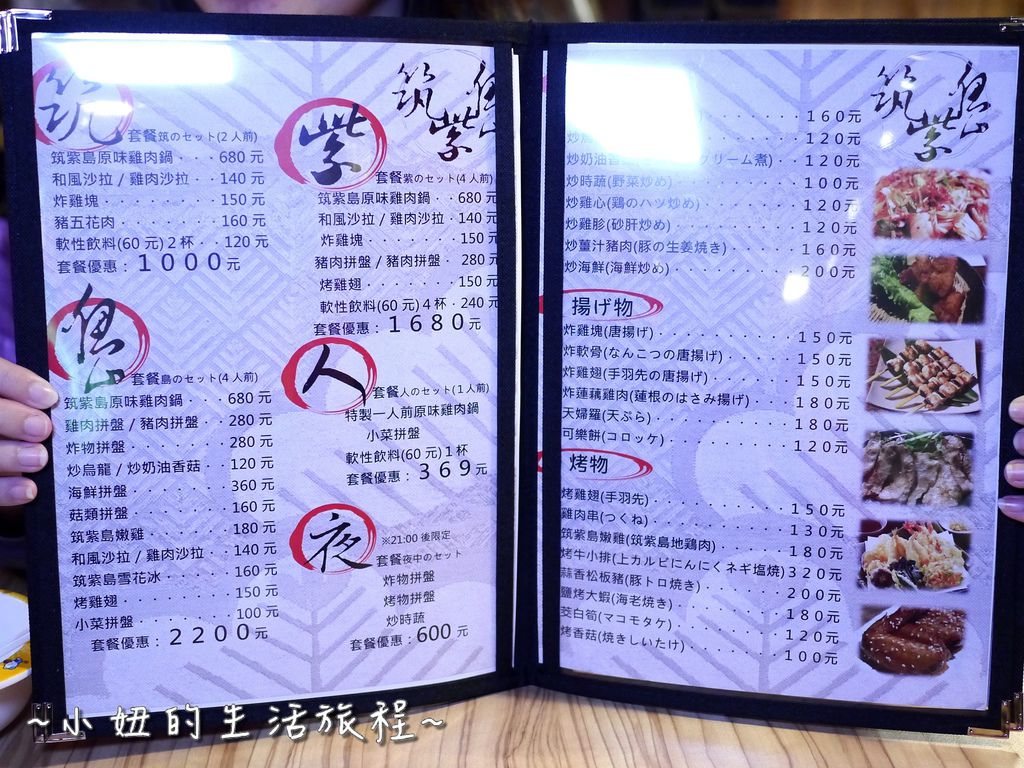 筑
套餐 筑のセット(2 人前)
筑紫島原味雞肉鍋 · · · 680 元
和風沙拉 / 雞肉沙拉 · · 140 元
炸雞塊 · · · · · · · · 150 元
豬五花肉 · · · · · · · 160 元
軟性飲料(60 元) 2 杯 · · 120 元
套餐優惠： 1000元
島
套餐 島のセット(4 人前)
筑紫島原味雞肉鍋 · · · 680 元
雞肉拼盤 / 豬肉拼盤 · · 280 元
炸物拼盤 · · · · · · · 280 元
炒烏龍 / 炒奶油香菇 · · 120 元
海鮮拼盤 · · · · · · · 360 元
菇類拼盤 · · · · · · · 160 元
筑紫島嫩雞 · · · · · · 180 元
和風沙拉 / 雞肉沙拉 · · 140 元
筑紫島雪花冰 · · · · · 160 元
烤雞翅 · · · · · · · · 150 元
小菜拼盤 · · · · · · · 100 元
套餐優惠： 2200元
筑紫島
紫
套餐 紫のセット(4 人前)
筑紫島原味雞肉鍋 · · 680 元
和風沙拉 / 雞肉沙拉 · 140 元
炸雞塊 · · · · · · · 150 元
豬肉拼盤 / 豬肉拼盤 · 280 元
烤雞翅 · · · · · · · 150 元
軟性飲料(60 元) 4 杯 · 240 元
套餐優惠： 1680元
人
套餐 人のセット(1 人前)
特製一人前原味雞肉鍋
小菜拼盤
軟性飲料(60 元) 1 杯
套餐優惠： 369元
夜
※21:00 後限定
套餐 夜中のセット
炸物拼盤
烤物拼盤
炒時蔬
套餐優惠： 600 元
筑紫島
) · · · · · · · 160元
炒 · · · · · · · 120元
炒奶油香 クリーム煮) · · 120元
炒時蔬(野菜炒め) · · · · · · · 100元
炒雞心(鶏のハツ炒め) · · · · · 120元
炒雞胗(砂肝炒め) · · · · · · · 120元
炒薑汁豬肉(豚の生姜焼き) · · · 160元
炒海鮮(海鮮炒め) · · · · · · · 200元
揚げ物
炸雞塊(唐揚げ) · · · · · · · · 150元
炸軟骨(なんこつの唐揚げ) · · · 150元
炸雞翅(手羽先の唐揚げ) · · · · 150元
炸蓮藕雞肉(蓮根のはさみ揚げ) · · 180元
天婦羅(天ぷら) · · · · · · · · 180元
可樂餅(コロッケ) · · · · · · · 120元
烤物
烤雞翅(手羽先) · · · · · · · · 150元
雞肉串(つくね) · · · · · · · · 130元
筑紫島嫩雞(筑紫島地鶏肉) · · · 180元
烤牛小排(上カルビにんにくネギ塩焼) 320元
蒜香松板豬(豚トロ焼き) · · · · 200元
鹽烤大蝦(海老焼き) · · · · · · 180元
茭白筍(マコモタケ) · · · · · · 120元
烤香菇(焼きしいたけ) · · · · · 100元
~小妞的生活旅程~